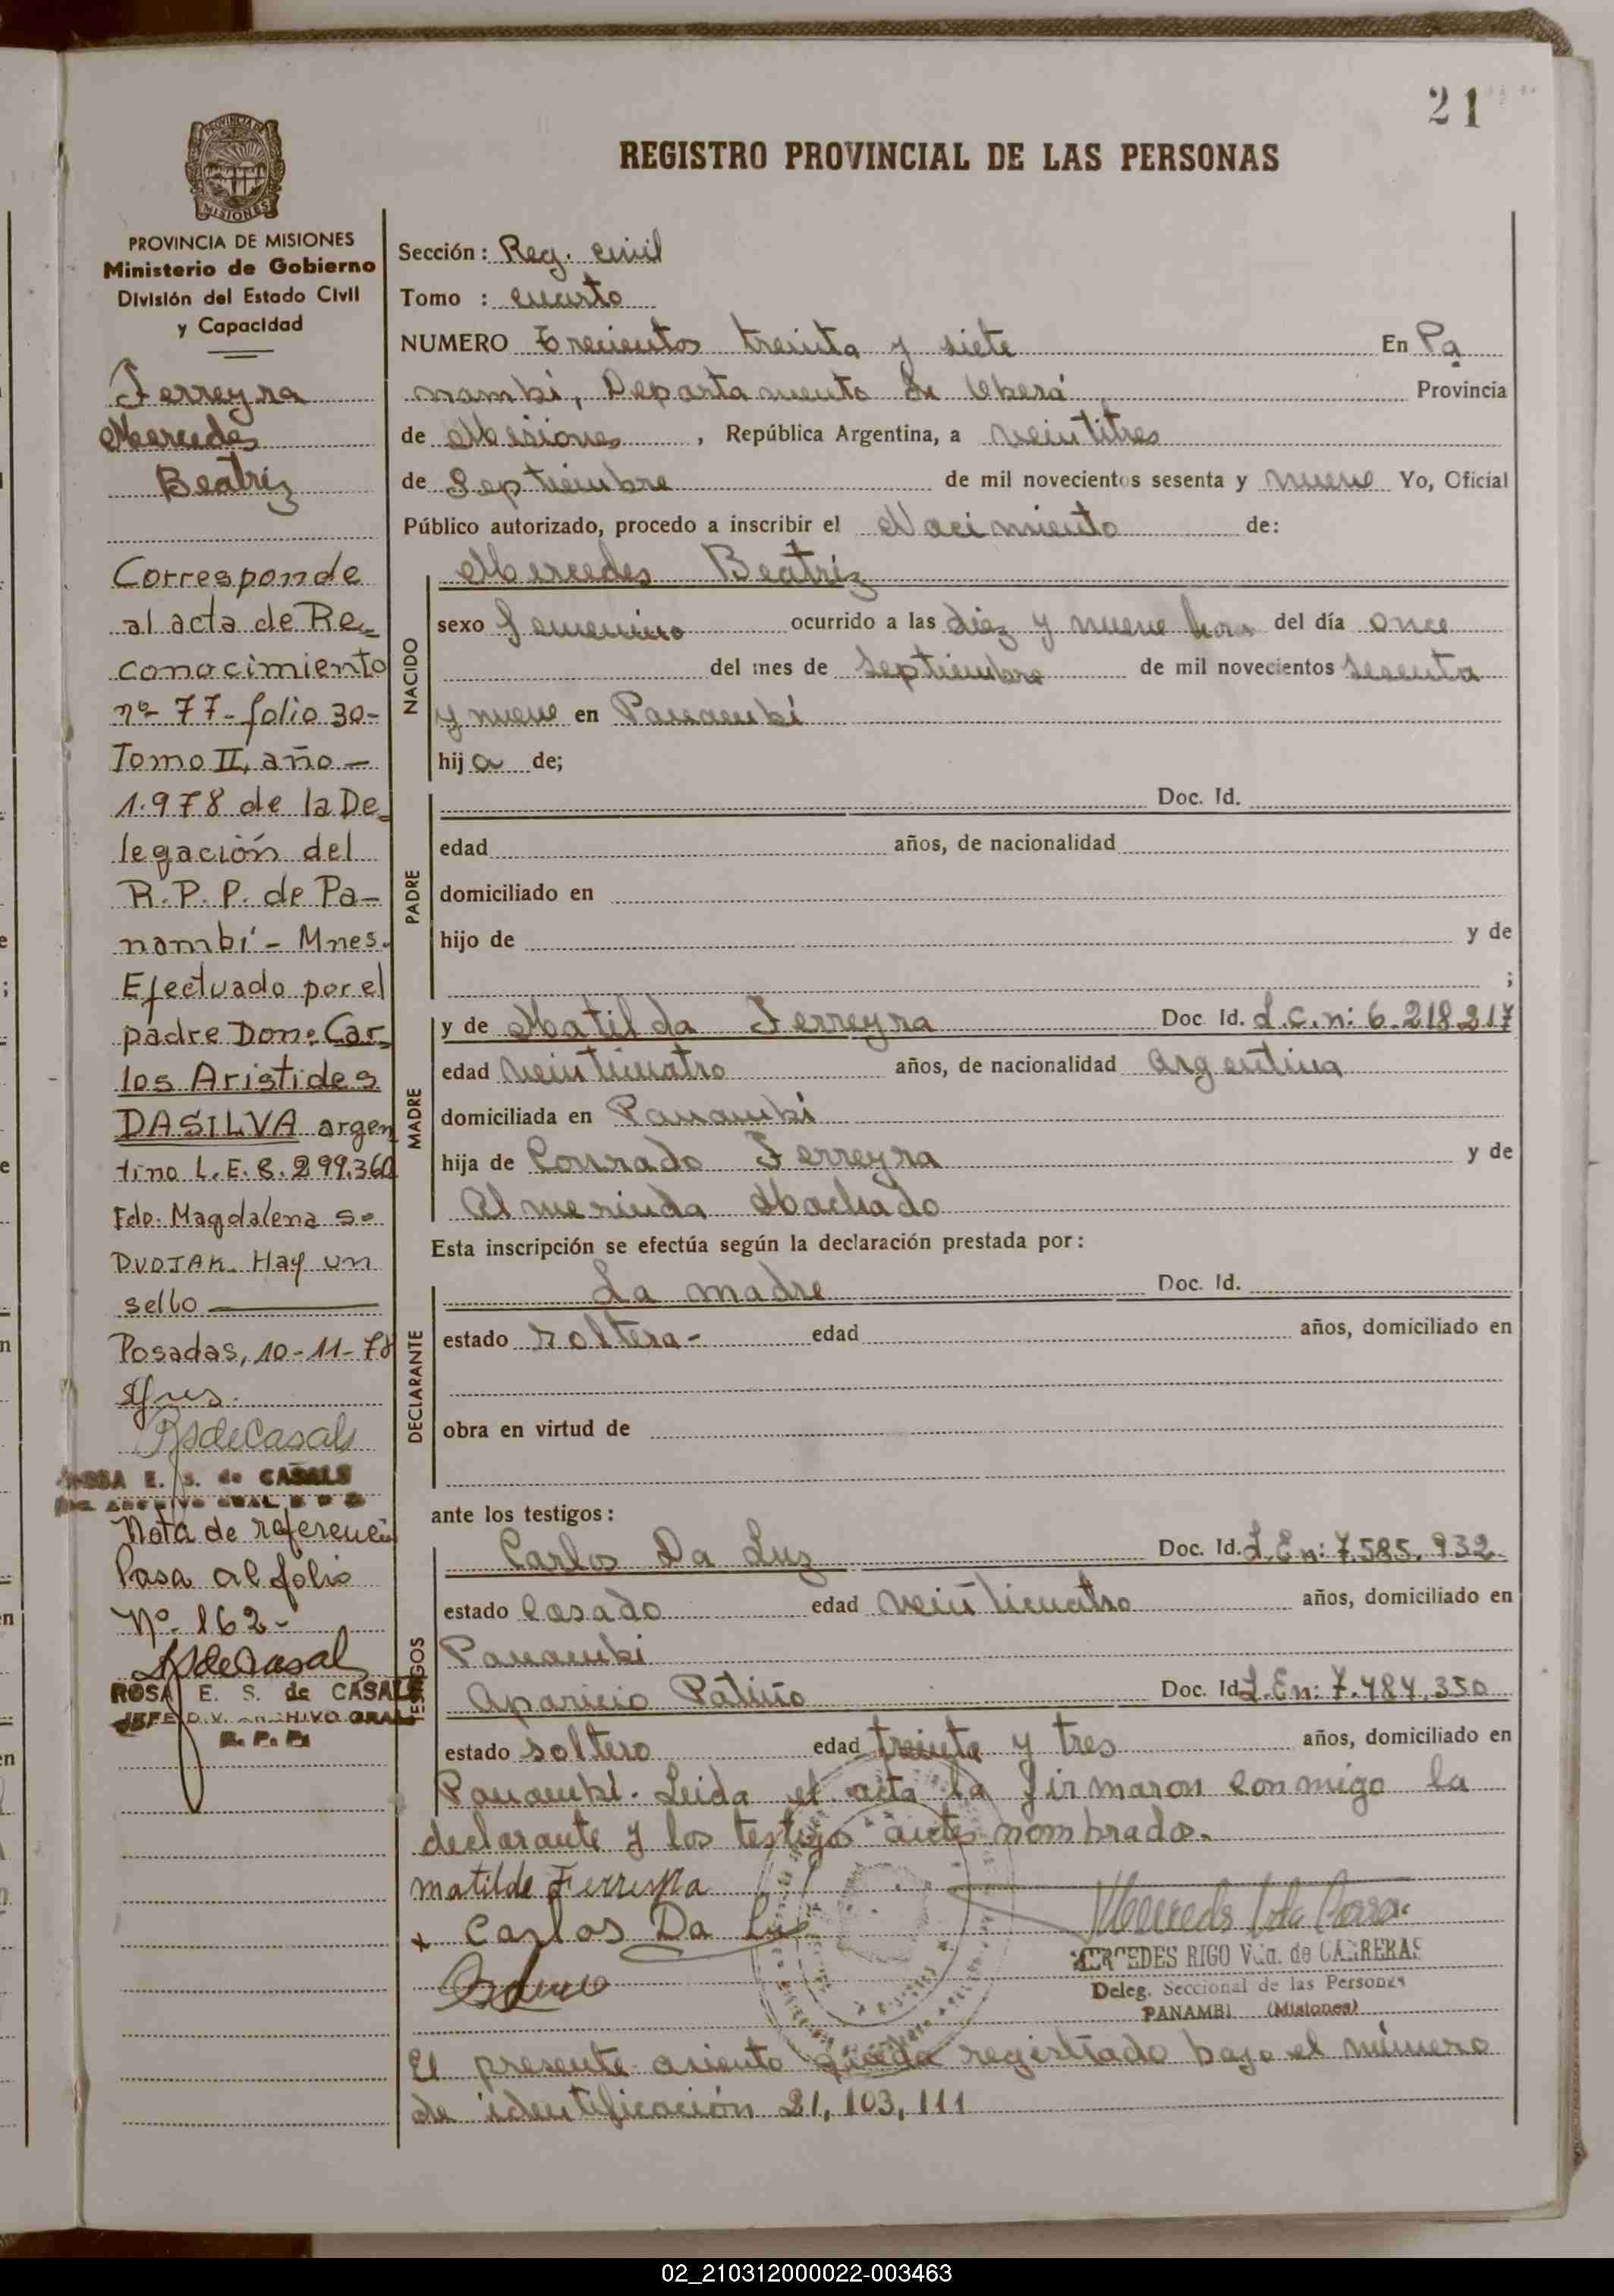 21
REGISTRO PROVINCIAL DE LAS PERSONAS
MISIONES
PROVINCIA DE MISIONES
Ministerio de Gobierno
División del Estado Civil
y Capacidad
Ferreyra
Mercedes
Beatriz
Corresponde
al acta de Re=
conocimiento
nº 77- folio 30-
Tomo II, año -
1.978 de la De=
legación del
R.P.P. de Pa-
nambí - Mnes.
Efectuado por el
padre Don: Car=
los Aristides
DASILVA argen
tino L.E. 8.299.360
Fdo: Magdalena S.
DVOJAK. Hay un
sello
Posadas, 10-11-78
RSdeCasals
ROSA E. S. de CASALS
Nota de referencia
Pasa al folio
Nº 162-
RSdeCasal
ROSA E. S. de CASALS
JEFE DIV. ARCHIVO GRAL
R. P. P.
Sección: Reg. civil
Tomo : cuarto
NUMERO Trecientos treinta y siete En Pa
nambí, Departamento de Oberá Provincia
de Misiones, República Argentina, a veintitres
de Septiembre de mil novecientos sesenta y nueve Yo, Oficial
Público autorizado, procedo a inscribir el Nacimiento de:
NACIDO
Mercedes Beatríz
sexo femenino ocurrido a las diez y nueve hora del día once
del mes de septiembre de mil novecientos sesenta
y nueve en Panambí
hija de;
PADRE
Doc. Id.
edad años, de nacionalidad
domiciliado en
hijo de y de
;
MADRE
y de Matilda Ferreyra Doc. Id. L.C.n: 6.218.217
edad veinticuatro años, de nacionalidad argentina
domiciliada en Panambí
hija de Conrado Ferreyra y de
Almerinda Machado
Esta inscripción se efectúa según la declaración prestada por:
DECLARANTE
La madre Doc. Id.
estado soltera- edad años, domiciliado en
obra en virtud de
ante los testigos:
TESTIGOS
Carlos Da Luz Doc. Id. L.E n: 7.585.932
estado casado edad veinticuatro años, domiciliado en
Panambi
Aparicio Patiño Doc. Id. L.E n: 7.484.350
estado soltero edad treinta y tres años, domiciliado en
Panambí. Leida el acta la firmaron conmigo la
declarante y los testigos antes nombrados.
matilde Ferreyra
+ Carlos Da Luz
MERCEDES RIGO Vda. de CARRERAS
Deleg. Seccional de las Personas
PANAMBI (Misiones)
El presente asiento queda registrado bajo el número
de identificación 21,103,111
02_210312000022-003463